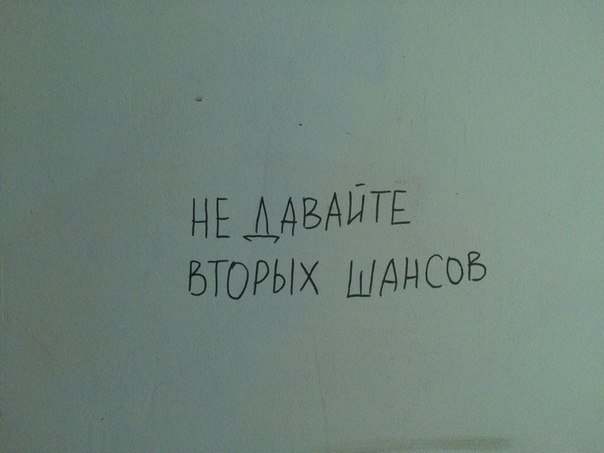 НЕ ДАВАЙТЕ
ВТОРЫХ ШАНСОВ